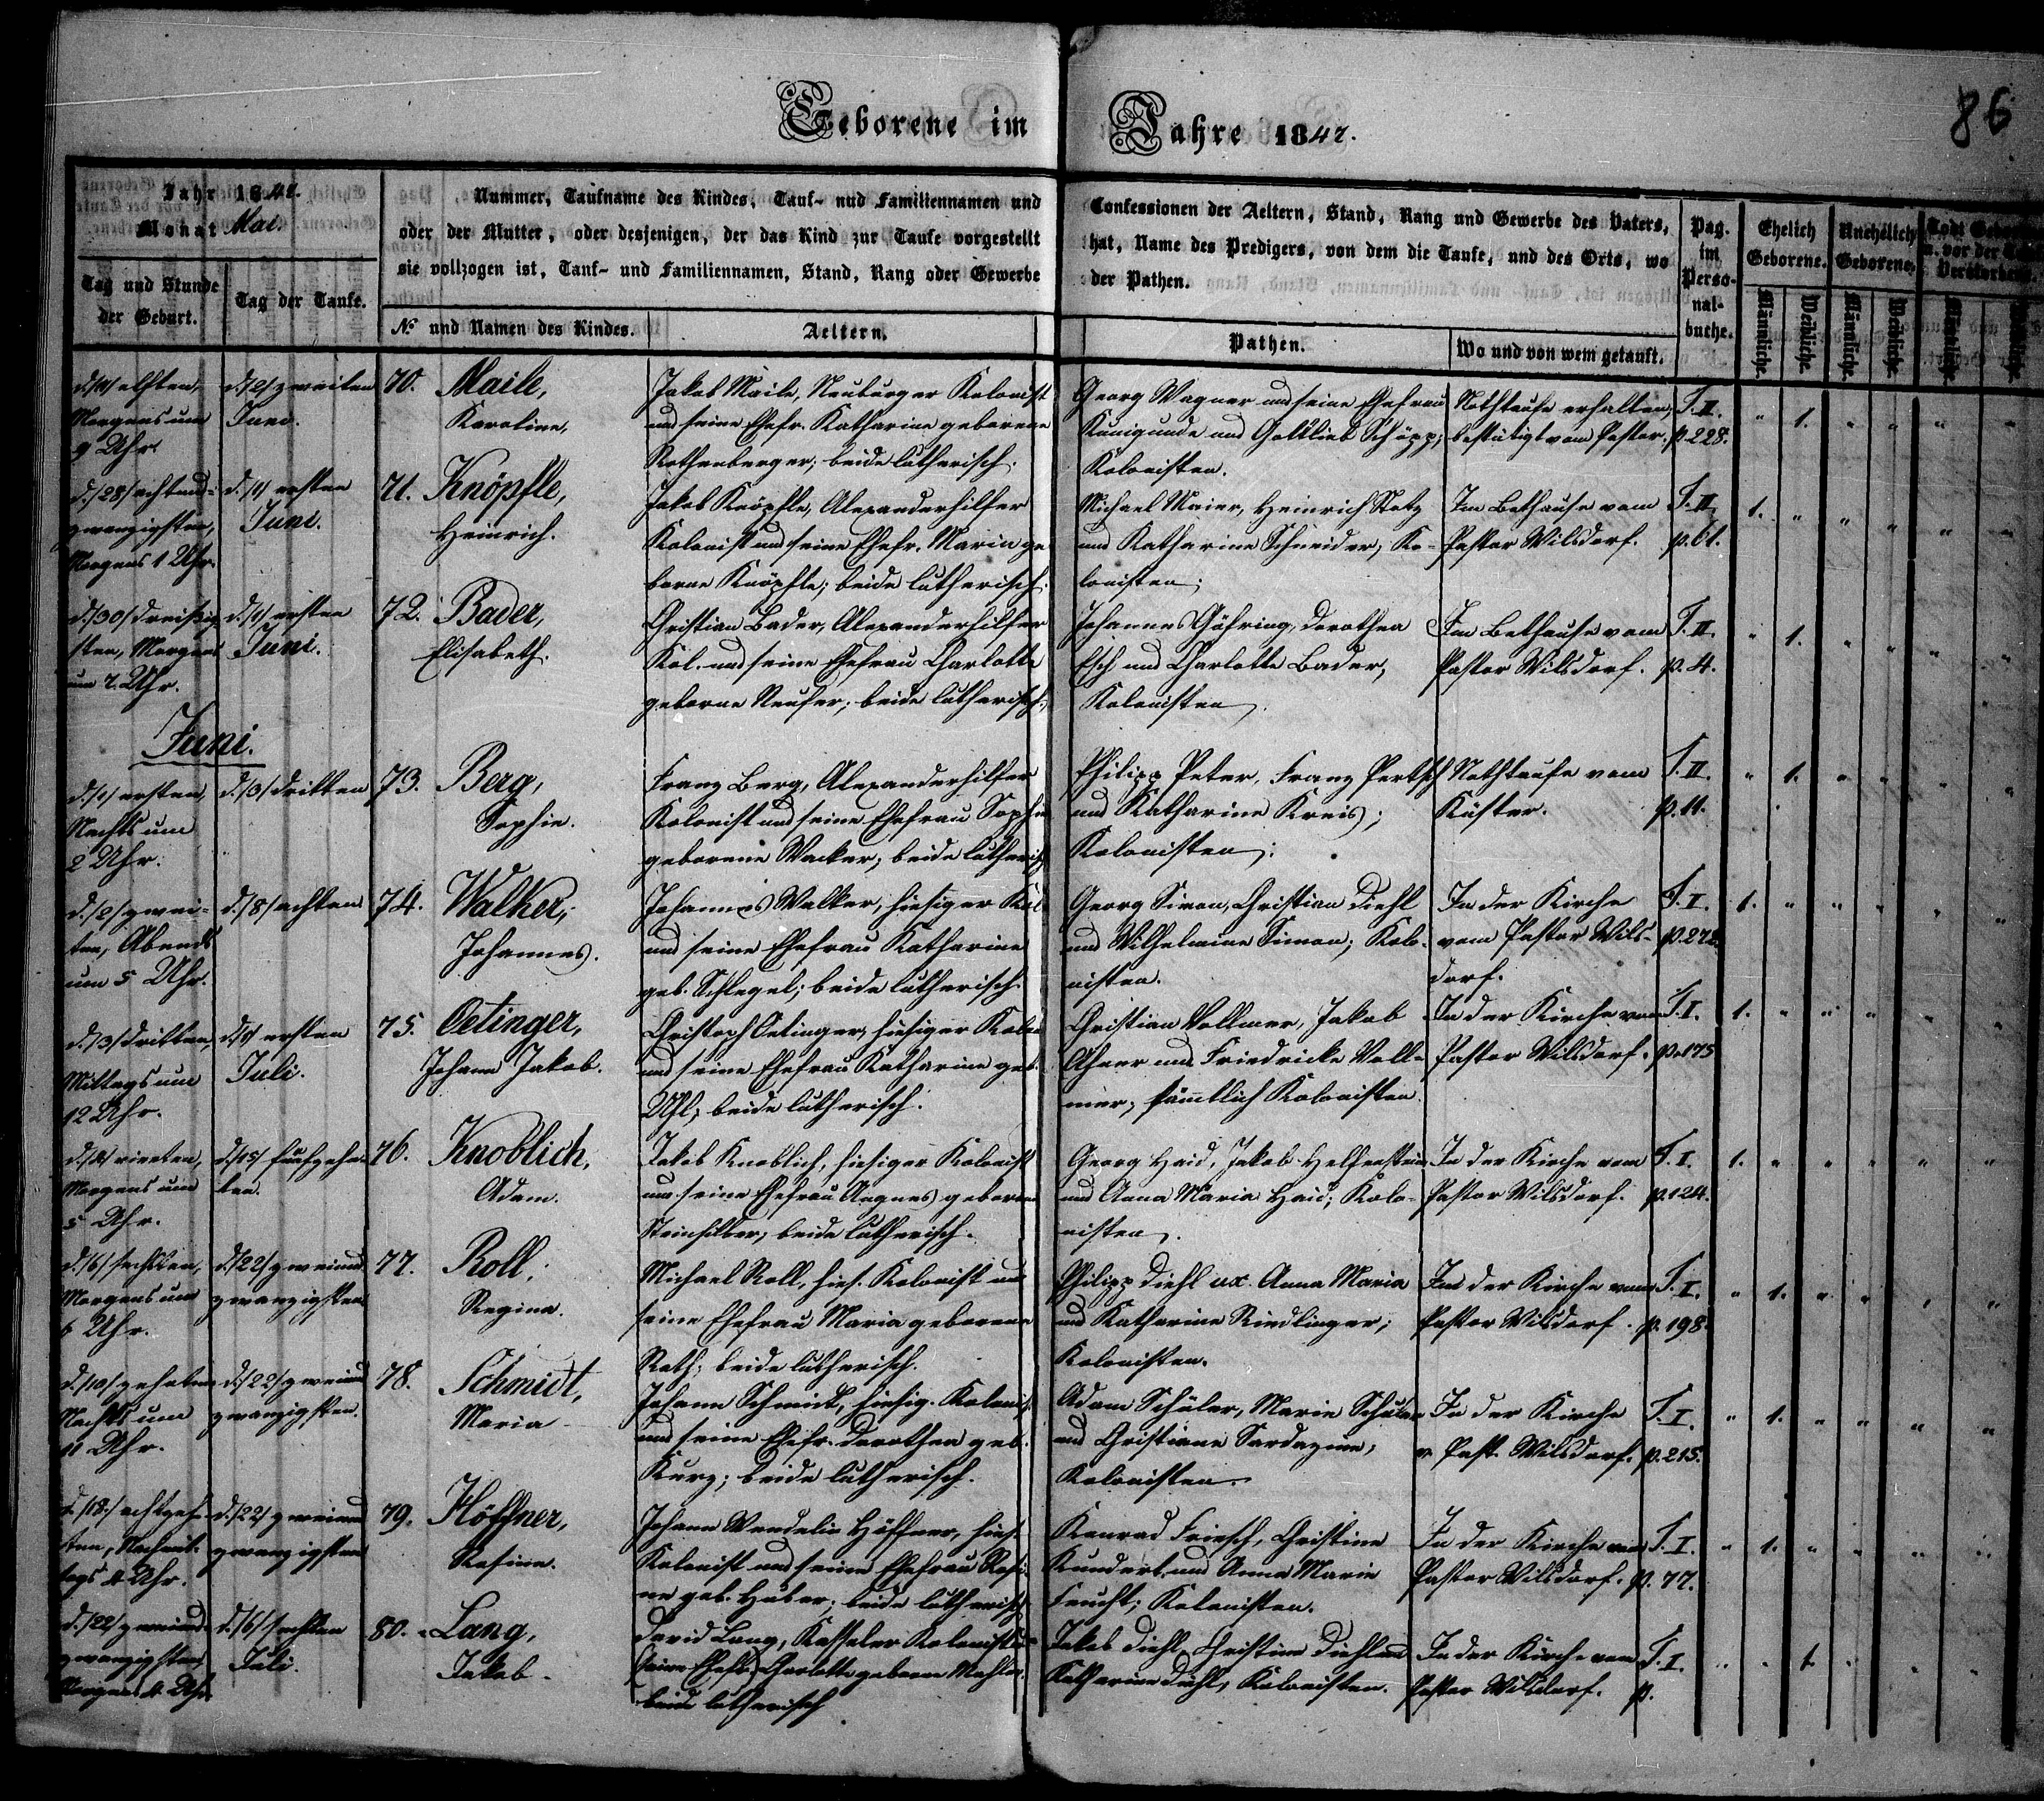 86
Geborene im Jahre 1847.
Jahr 1847.
Monat Mai.
Nummer, Taufname des Kindes, Tauf- und Familiennamen und Confessionen der Aeltern, Stand, Rang und Gewerbe des Vaters,
oder der Mutter, oder desjenigen, der das Kind zur Taufe vorgestellt hat, Name des Predigers, von dem die Taufe, und des Orts, wo
sie vollzogen ist, Tauf- und Familiennamen, Stand, Rang oder Gewerbe der Pathen.
Pag. im Perso-nal-buche.
Ehelich Geborene.
Unehelich Geborene.
Todt Gebor
u. vor der
Verstorbene
Tag und Stunde der Geburt.
Tag der Taufe.
No und Namen des Kindes.
Aeltern.
Pathen.
Wo und von wem getauft.
Männliche. Weibliche. Männliche. Weibliche. Männliche. Weibliche.
d. /11/ elften,
Morgens um
9 Uhr.
d. /2/ zweiten
Juni.
70. Maile,
Karoline,
Jakob Maile, Neuburger Kolonist
und seine Ehefr. Katharine geborene
Rothenberger; beide lutherisch.
Georg Wagner und seine Ehefrau
Kunigunde und Gottlieb Schöpp;
Kolonisten.
Nothtaufe erhalten,
bestätigt vom Pastor.
T. II.
p. 228.
" 1. " " " "
d. /28/ achtund-
zwanzigsten,
Morgens 1 Uhr.
d. /1/ ersten
Juni.
71. Knöpfle,
Heinrich.
Jakob Knöpfle, Alexanderhilfer
Kolonist und seine Ehefr. Maria ge-
borne Knöpfle; beide lutherisch.
Michael Maier, Heinrich Stotz
und Katharine Schneider, Ko-
lonisten;
Im Bethause vom
Pastor Wilsdorf.
T. II.
p. 61.
1. " " " " "
d. /30/ dreißig-
sten, Morgens
um 7. Uhr.
d. /1/ ersten
Juni.
72. Bader,
Elisabeth.
Christian Bader, Alexanderhilfer
Kol. und seine Ehefrau Charlotte
geborne Neufer; beide lutherisch;
Johannes Göhring, Dorothea
Esch und Charlotte Bader,
Kolonisten.
Im Bethause vom
Pastor Wilsdorf.
T. II.
p. 4.
" 1. " " " "
Juni.
d. /1/ ersten,
Nachts um
2 Uhr.
d. /3/ dritten
73. Berg,
Sophie.
Franz Berg, Alexanderhilfer
Kolonist und seine Ehefrau Sophie
geborene Wacker; beide lutherisch
Philipp Peter, Franz Pertsch
und Katharine Kreis;
Kolonisten;
Nothtaufe vom
Küster.
T. II.
p. 11.
" 1. " " " "
d. /2/ zwei-
ten, Abends
um 5 Uhr.
d. /8/ achten
74. Walker,
Johannes.
Johannes Walker, hiesiger Kol.
und seine Ehefrau Katharine
geb. Schlegel; beide lutherisch.
Georg Simon, Christian Diehl
und Wilhelmine Simon; Kolo-
nisten.
In der Kirche
vom Pastor Wils-
dorf.
T. I.
1. " " " " "
d. /3/ dritten,
Mittags um
12 Uhr.
d. /1/ ersten
Juli.
75. Oetinger,
Johann Jakob.
Christoph Oetinger, hiesiger Kolon.
und seine Ehefrau Katharine geb.
Uhl; beide lutherisch.
Christian Vollmer, Jakob
und Friedricke Voll-
mer, sämtlich Kolonisten.
In der Kirche vom
Pastor Wilsdorf.
T. I.
p. 175
1. " " " " "
d. /4/ vierten,
Morgens um
5 Uhr.
d. /15/ fünfzehn-
ten.
76. Knoblich,
Adam.
Jakob Knoblich, hiesiger Kolonist
und seine Ehefrau Agnes geborene
Steinhilber; beide lutherisch.
Georg Haid, Jakob Helfenstein
und Anna Maria Haid; Kolo-
nisten.
In der Kirche vom
Pastor Wilsdorf.
T. I.
p. 124.
1. " " " " "
d. /6/ sechsten,
Morgens um
6 Uhr.
d. /22/ zweiund-
zwanzigsten
77. Roll,
Regina.
Michael Roll, hies. Kolonist und
seine Ehefrau Maria geborene
Roth; beide lutherisch.
Philipp Diehl ux. Anna Maria
und Katharine Riedlinger;
Kolonisten.
In der Kirche vom
Pastor Wilsdorf.
T. I.
p. 198.
" 1. " " " "
d. /10/ zehnten
Nachts um
11 Uhr.
d. /22/ zweiund
zwanzigsten.
78. Schmidt,
Maria
Johann Schmidt, hiesig. Kolonist
und seine Ehefr. Dorothea geb.
Kurz; beide lutherisch.
Adam Schüler, Marie Schüler
und Christiane
Kolonisten.
In der Kirche
v. Past. Wilsdorf.
T. I.
p. 215.
" 1. " " " "
d. /18/ achtzehn-
ten, Nachmit-
tags 4 Uhr.
d. /22/ zweiund
zwanzigsten
79. Höffner,
Rosine.
Johann Wendelin Höffner, hies.
Kolonist und seine Ehefrau Rosi-
ne geb. Huber; beide lutherisch
Konrad Friesch, Christine
Kundert und Anna Marie
Feucht; Kolonisten.
In der Kirche vom
Pastor Wilsdorf.
T. I.
p. 77.
" 1. " " " "
d. /22/ zweiund-
zwanzigsten
Morgens 4 Uhr
d. /6/ sechsten
Juli.
80. Lang,
Jakob.
David Lang, Kasseler Kolonist u.
seine Ehefr. Charlotte geborne
beide lutherisch
Jakob Diehl, Christine Diehl und
Katharine Diehl, Kolonisten.
In der Kirche vom
Pastor Wilsdorf.
T. I.
p.
" " 1. " " "